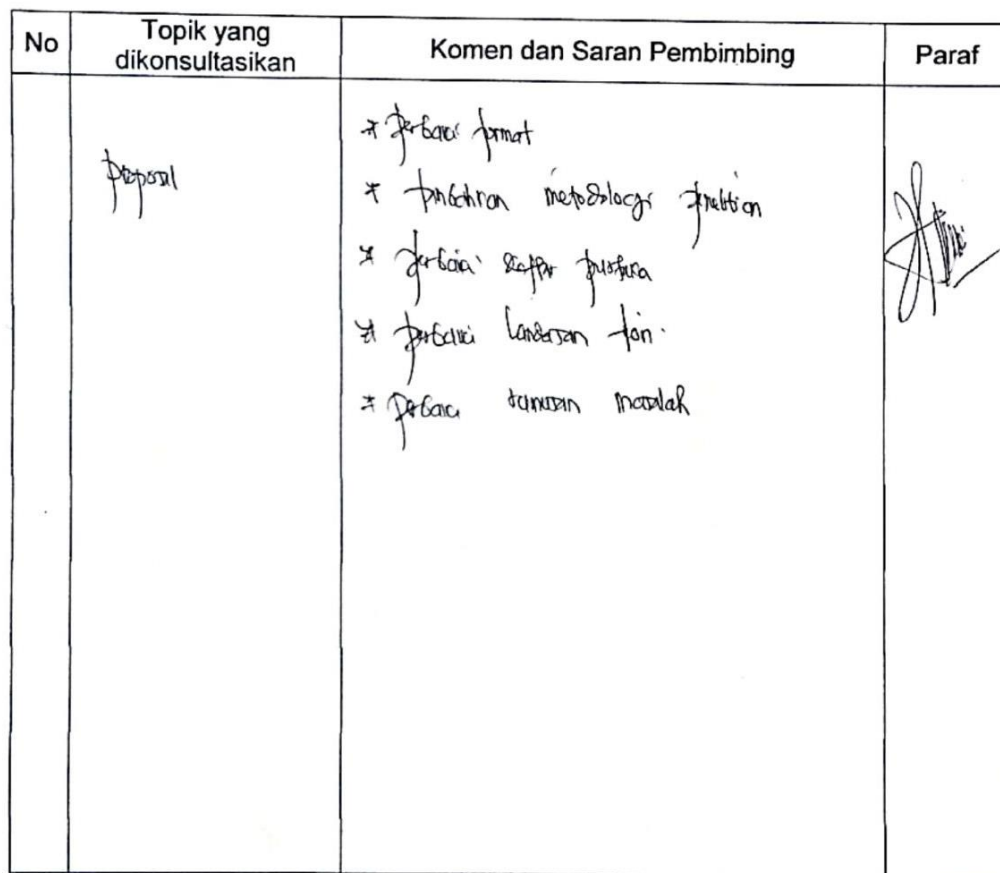 No
Topik yang
dikonsultasikan
Komen dan Saran Pembimbing
Paraf
proposal
* Perbaiki format
* tambahkan metodologi penelitian
* perbaiki daftar pustaka
* perbaiki landasan teori
* Perbaiki rumusan masalah